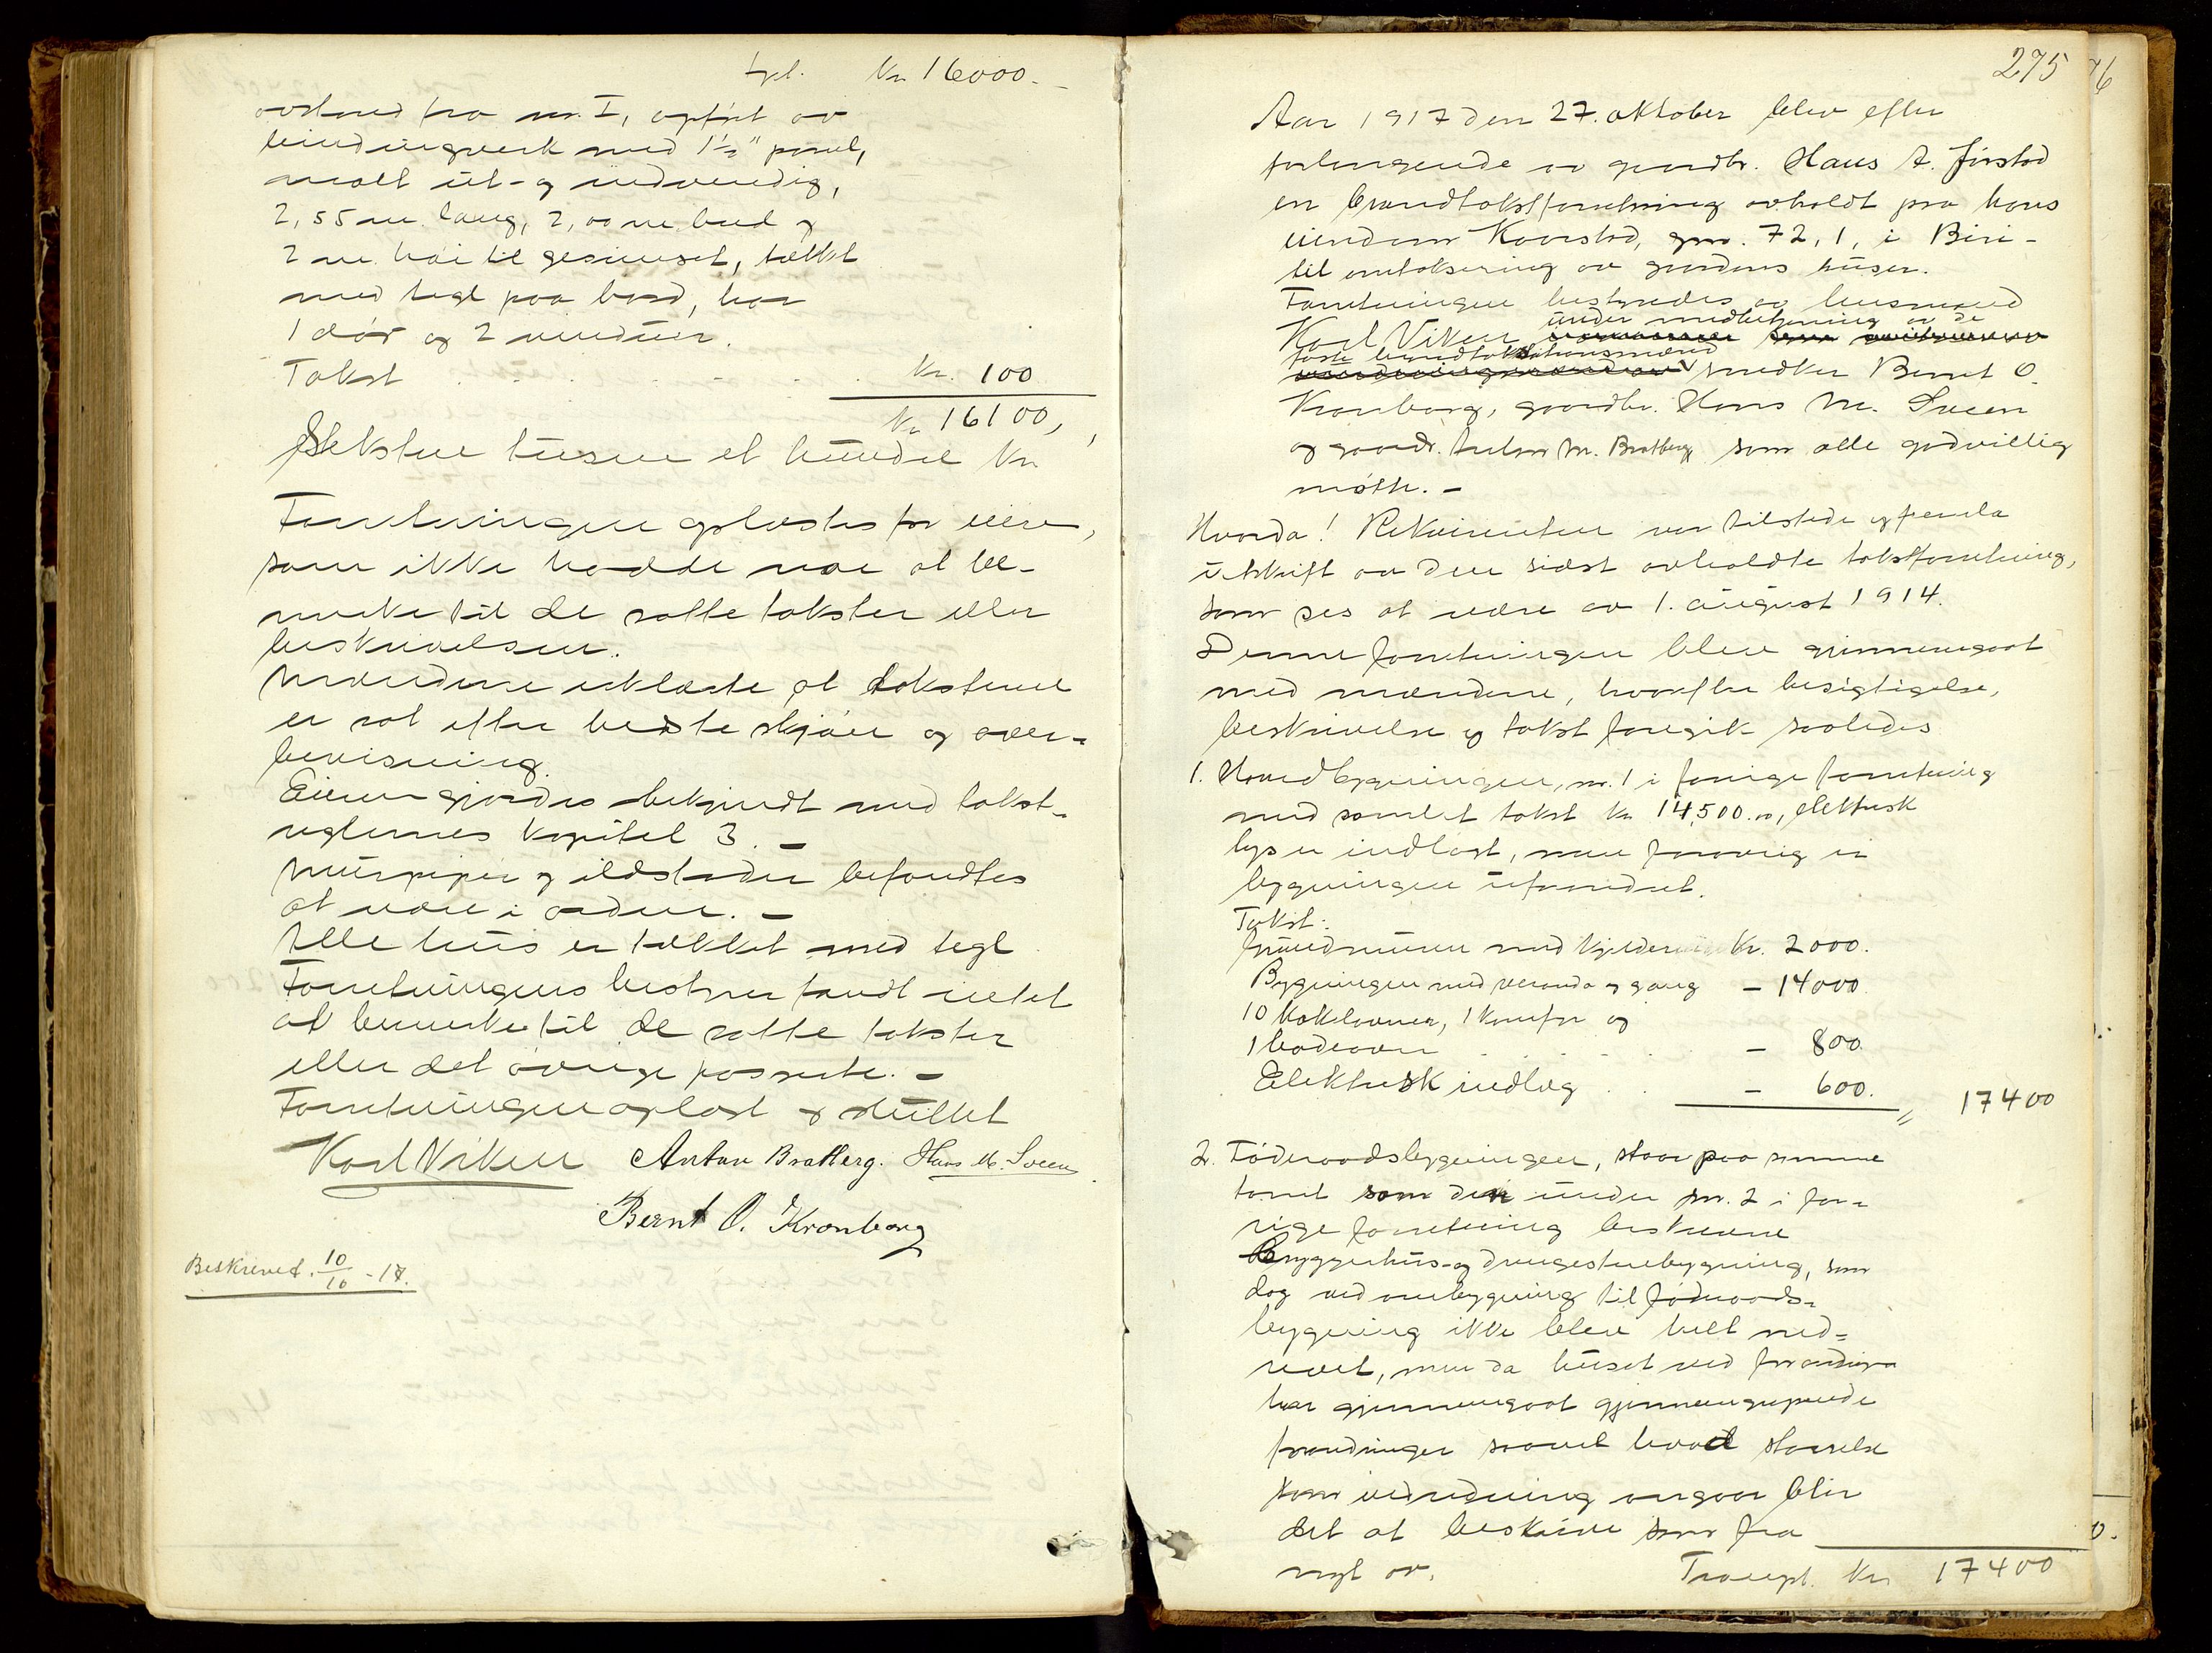 tpt. Kr 16000.-
avstand fra nr. I, opført av
bindingverk med 1½" panel,
malt ut- og indvendig,
2,55 m. lang, 2,00 m bred og
2 m. høi til gesimset, tækket
med tegl paa bord, har
1 dør og 2 vinduer.
Takst . . . . . . Kr. 100
Kr 16100,
Seksten tusen et hundre Kr.
Forretningen oplæstes for eieren,
som ikke hadde noe at be-
merke til de satte takster eller
beskrivelsen.
Mændene erklærte at taksterne
er sat efter bedste skjøn og over-
bevisning.
Eieren gjordes bekjendt med takst-
reglernes kapitel 3. -
Murpiper og ildsteder befandtes
at være i orden. -
Alle hus er tækket med tegl
Forretningens bestyrer fandt intet
at bemerke til de satte takster
eller det øvrige passerte. -
Forretningen oplæst og sluttet
Karl Viken Anton Bratberg. Hans M. Sveen
Bernt O. Kronborg
Beskrevet. 10/10 -17.
275
76
Aar 1917 den 27. oktober blev efter
forlangende av gaardbr. Hans A. Jørstad
en brandtakstforretning avholdt paa hans
eiendom Kaarstad, gnr. 72, 1, i Biri -
til omtaksering av gaardens huser.
Forretningen bestyredes av lensmand
Karl Viken under medbetjening av de
faste brandtakstmænd snedker Bernt O.
Kronborg, gaardbr. Hans M. Sveen
og gaardbr. Anton M. Bratberg som alle godvillig
møtte. -
Hvorda! Rekvirenten var tilstede og fremla
utskrift av den sidst avholdte takstforretning,
som ses at være av 1. august 1914.
Denne forretningen blev gjennemgaat
med mændene, hvorefter besigtigelse,
beskrivelse og takst foregik saaledes
1. Hovedbygningen, nr. 1 i forrige forretning
med samlet takst kr 14,500.00, elektrisk
lys er indlagt, men forøvrig er
bygningen uforandret.
Takst:
Grundmuren med kjelder Kr. 2000.
Bygningen med veranda og gang - 14000
10 kakkelovner, 1 komfyr og
1 badeovn . . . . - 800.
Elektrisk indlæg . . - 600.
" 17400
2. Føderaadsbygningen, staar paa samme
tomt som den under nr. 2 i for-
rige forretning beskrevne
Bryggerhus- og drengestuebygning, som
dog ved ombygning til føderaads-
bygning ikke blev helt ned-
revet, men da huset ved
har gjennemgaat gjennemgripende
forandringer saavel hvad størrelse
som indredning angaar blir
det at beskrive som fra
nyt av.
Transpt. Kr 17400